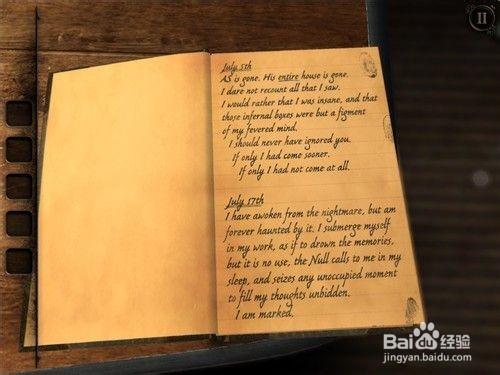 July 5th
AS is gone. His entire house is gone.
I dare not recount all that I saw.
I would rather that I was insane, and that
those infernal boxes were but a figment
of my fevered mind.
I should never have ignored you.
If only I had come sooner.
If only I had not come at all.
July 17th
I have awoken from the nightmare, but am
forever haunted by it. I submerge myself
in my work, as if to drown the memories,
but it is no use, the Null calls to me in my
sleep, and seizes any unoccupied moment
to fill my thoughts unbidden.
I am marked.
II
Baidu经验
jingyan.baidu.com